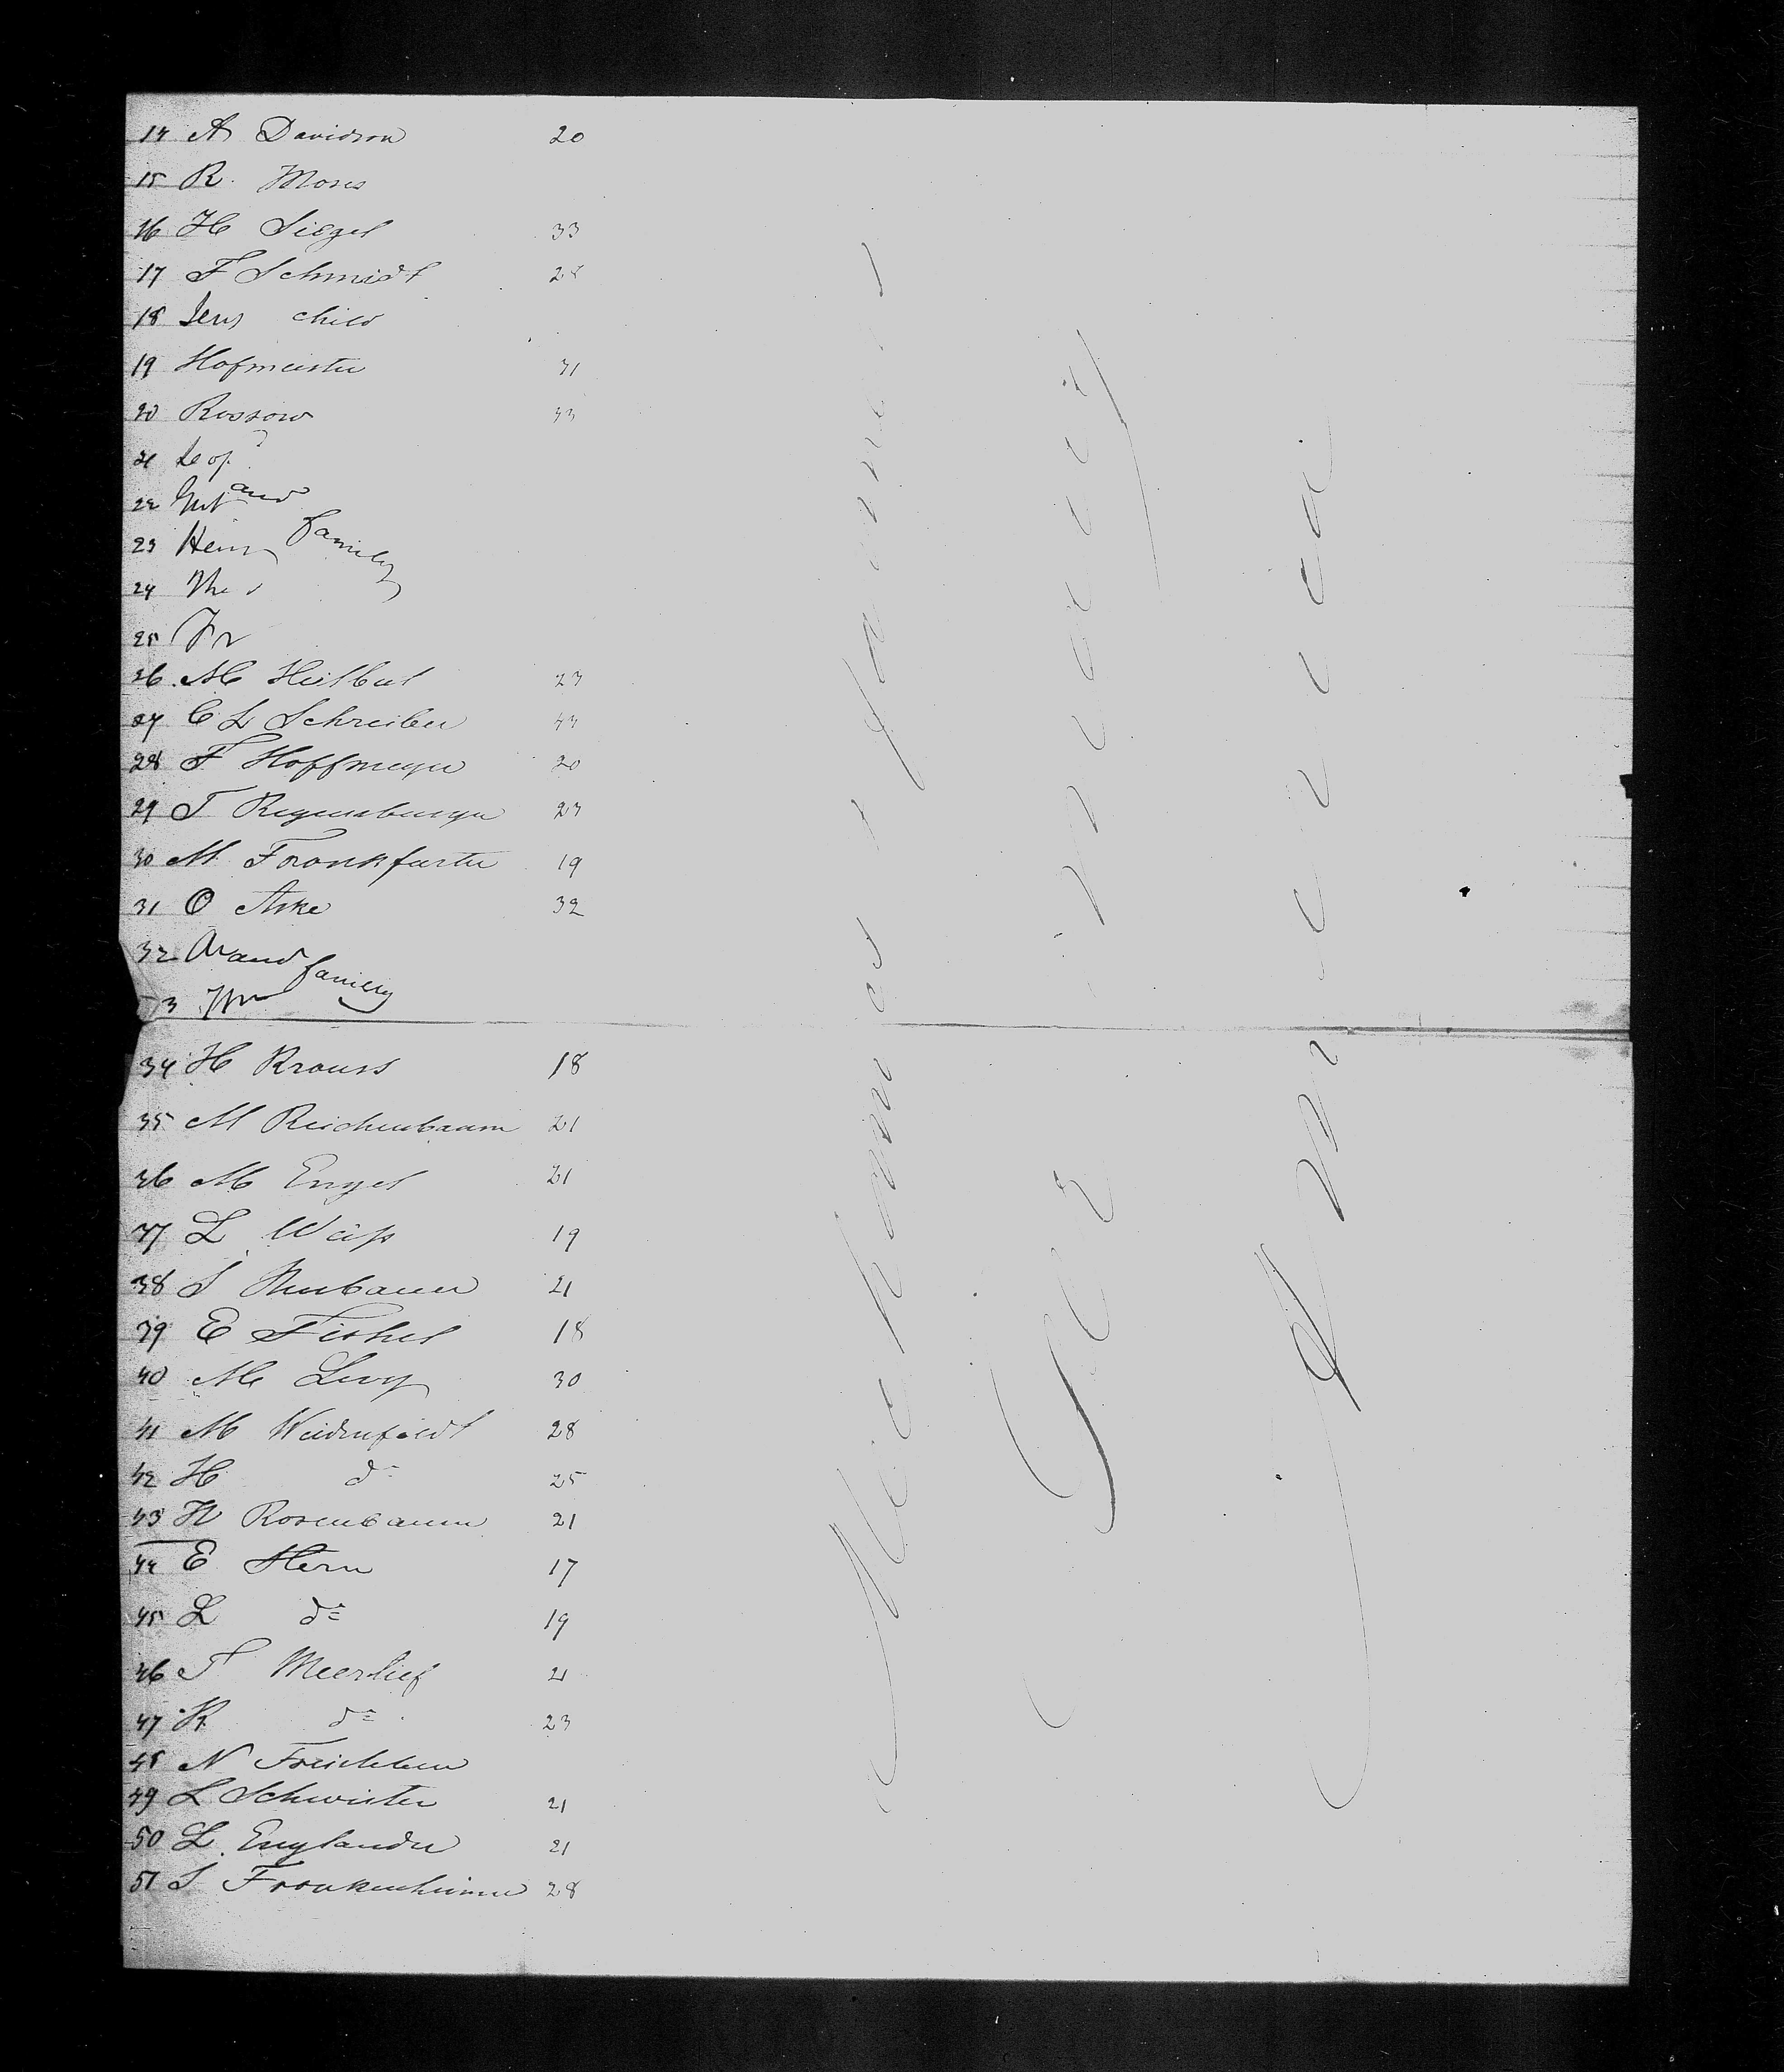 14 A Davidson 20
15 R. Moses
16 H Siegel 33
17 F Schmidt 28
18 Jens child
19 Hofmeister 31
20 Rossow 33
21 Leop
22 and
23 Henr family
24
25 Fr
26 M Heilbut 23
27 C L Schreiber 43
28 F Hoffmeyer 20
29 T Regensburger 23
30 M Frankfurter 19
31 O Aske 32
32 and family
33
34 H Krauss 18
35 M Reichenbaum 21
36 M Engel 21
37 L Weiss 19
38 S Neubauer 21
39 E Fishel 18
40 M Levy 30
41 M Weidenfeldt 28
42 H do 25
43 H Rosenbaum 21
44 E Stern 17
45 L do 19
46 T Meerlief 21
47 R do 23
48 N
49 L Schwister 21
50 L. Englander 21
51 S Frankenheimer 28
Mechanics & farmers
Germany
America